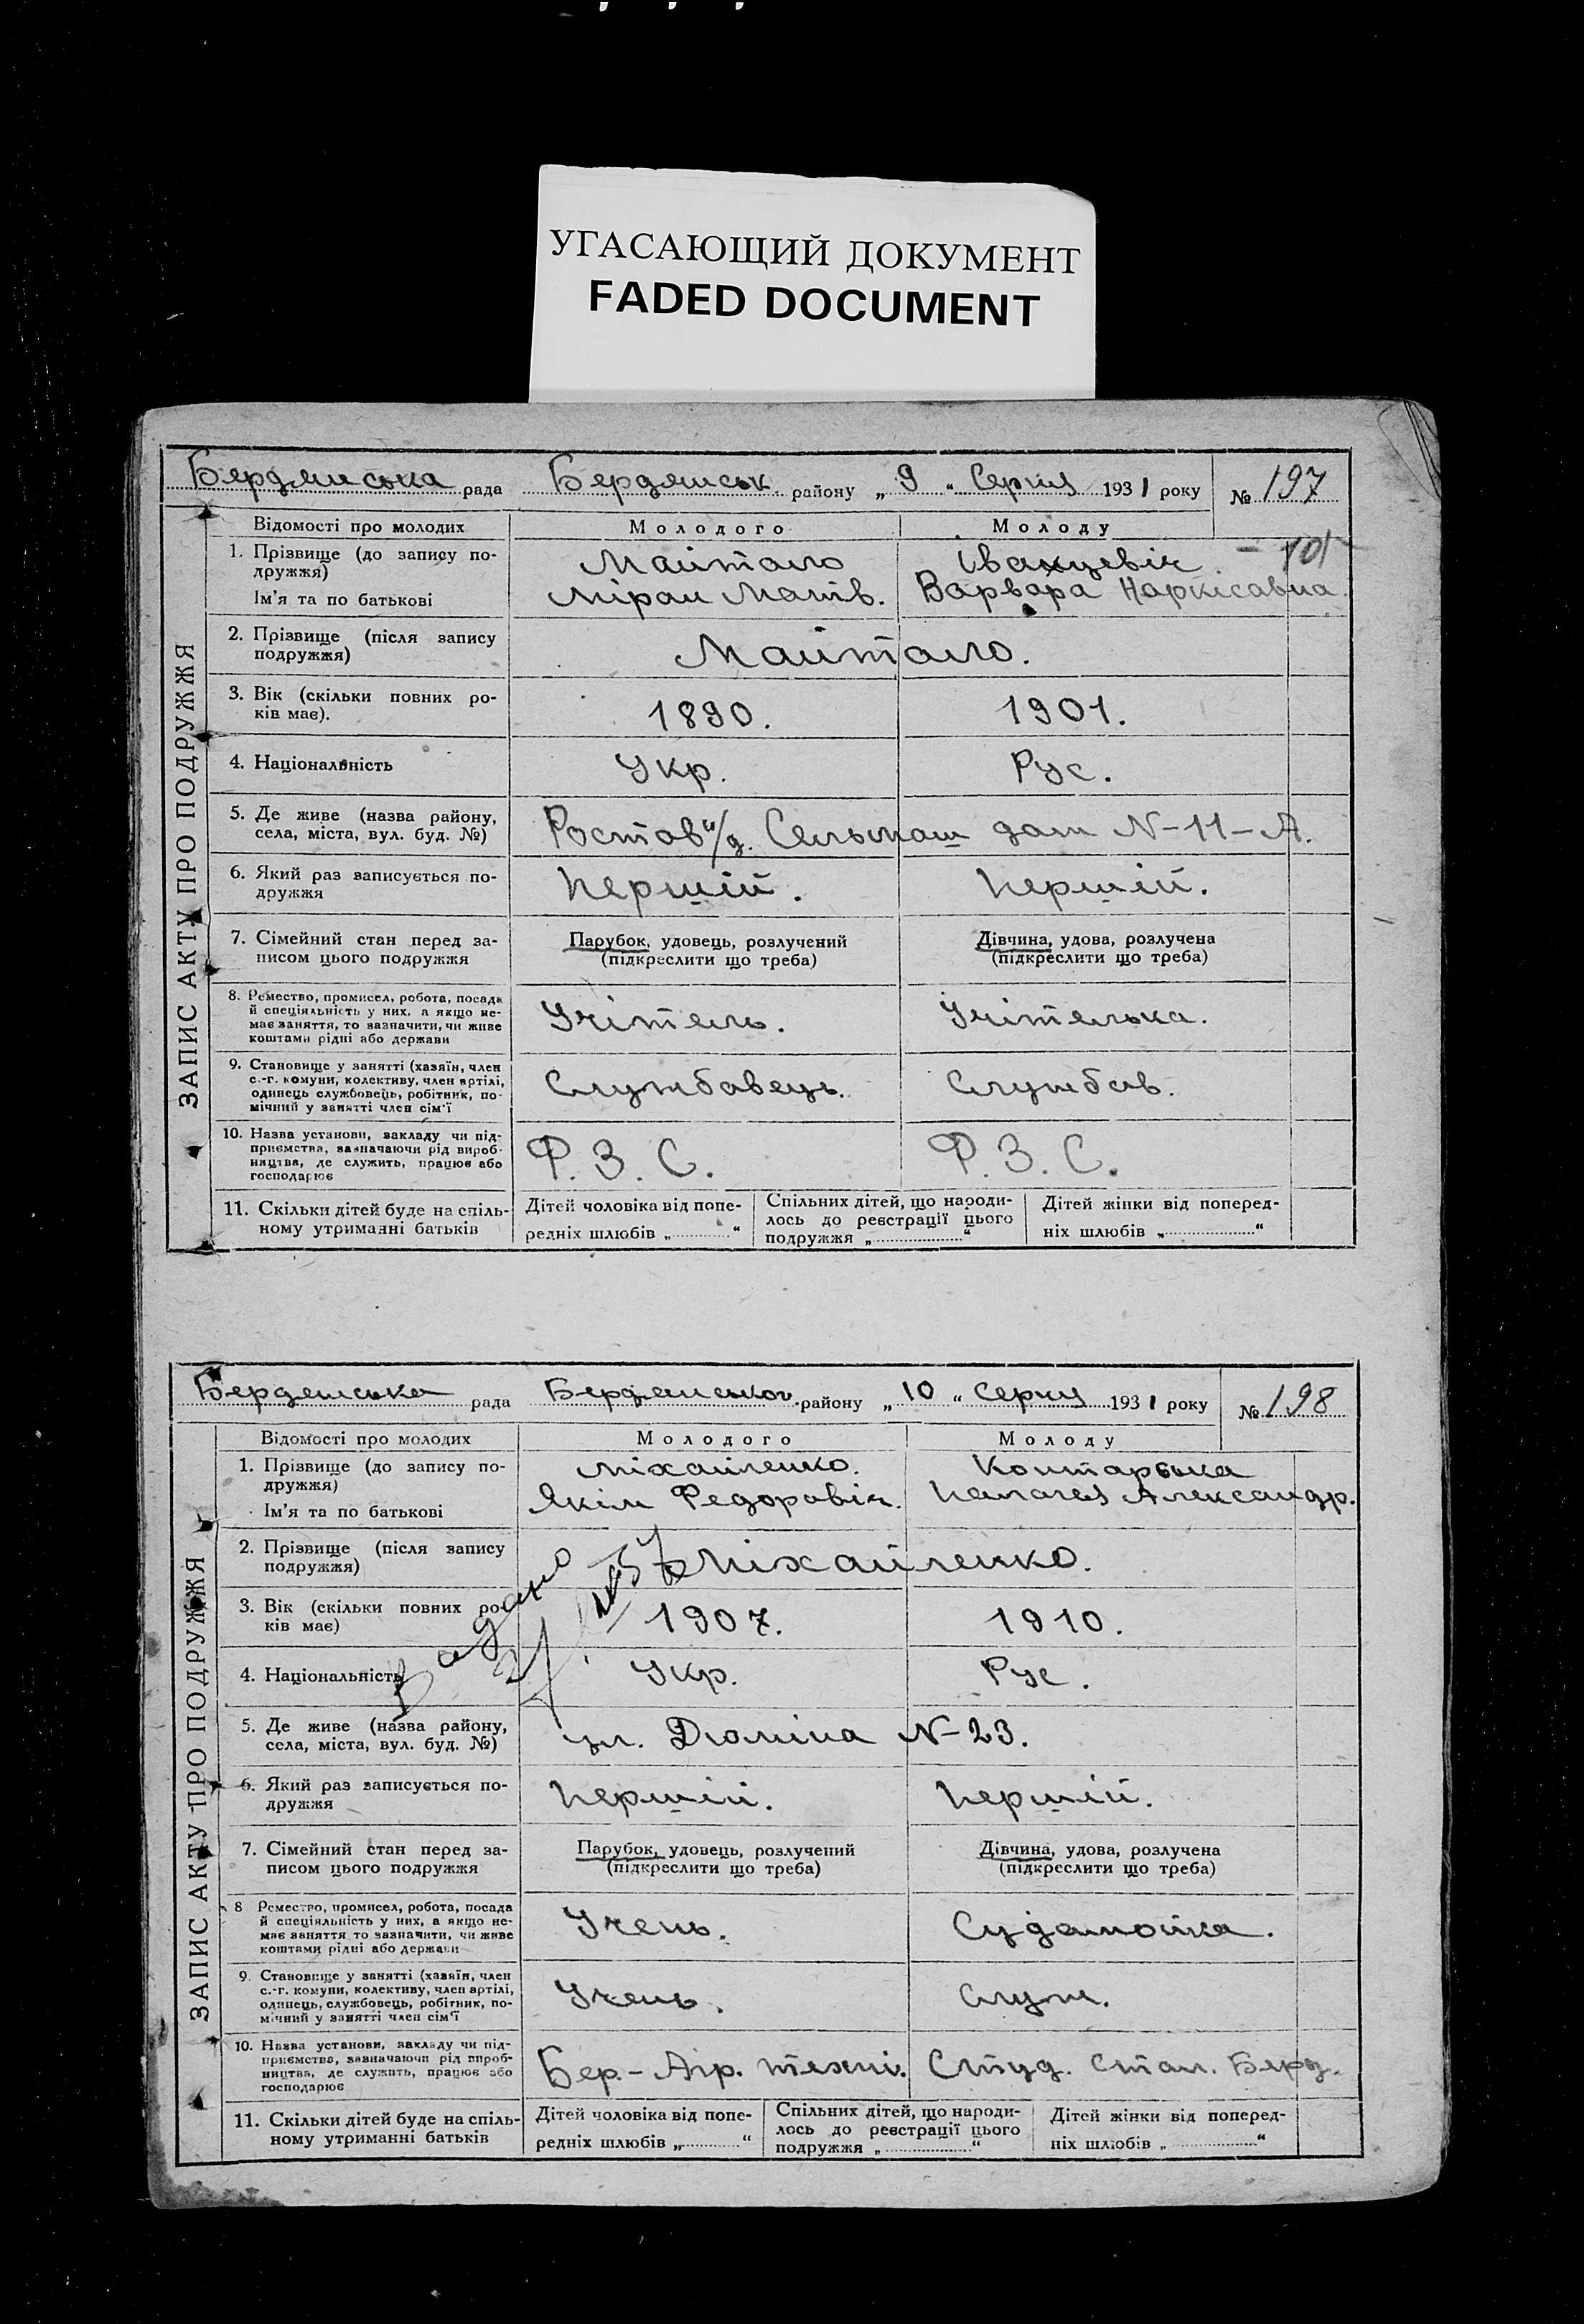 УГАСАЮЩИЙ ДОКУМЕНТ
FADED DOCUMENT
Бердянська рада Бердянськ. району „ 9 “ Серпня 1931 року № 197
ЗАПИС АКТУ ПРО ПОДРУЖЖЯ
Відомості про молодих Молодого Молоду
1. Прізвище (до запису по-
дружжя)
Ім'я та по батькові
Івахцевіч
Мірон Матв. Варвара Наркісавна
2. Прізвище (після запису
подружжя)
3. Вік (скільки повних ро-
ків має).
1890. 1901.
4. Національність Укр. Рус.
5. Де живе (назва району,
села, міста, вул. буд. №)
Ростов н/д. Сельмаш дом N-11-А.
6. Який раз записується по-
дружжя
Першій. Першій.
7. Сімейний стан перед за-
писом цього подружжя
Парубок, удовець, розлучений
(підкреслити що треба)
Дівчина, удова, розлучена
(підкреслити що треба)
8. Ремество, промисел, робота, посада
й спеціяльність у них, а якщо не-
має заняття, то зазначити, чи живе
коштами рідні або держави
Учітель. Учітелька.
9. Становище у занятті (хазяїн, член
с.-г. комуни, колективу, член артілі,
одинець службовець, робітник, по-
мічний у занятті член сім'ї
Службавець. Службов.
10. Назва установи, закладу чи під-
приємства, зазначаючи рід вироб-
ництва, де служить, працює або
господарює
Ф. З. С. Ф. З. С.
11. Скільки дітей буде на спіль-
ному утриманні батьків
Дітей чоловіка від попе-
редніх шлюбів „ “
Спільних дітей, що народи-
лось до реєстрації цього
подружжя „ “
Дітей жінки від поперед-
ніх шлюбів „ “
Бердянська рада Бердянськог. району „ 10 “ Серпня 1931 року № 198
ЗАПИС АКТУ ПРО ПОДРУЖЖЯ
Відомості про молодих Молодого Молоду
1. Прізвище (до запису по-
дружжя)
Ім'я та по батькові
Міхайленко. Контарська
Якім Федоровіч. Александр.
2. Прізвище (після запису
подружжя)
Міхайленко.
3. Вік (скільки повних ро-
ків має)
1907. 1910.
4. Національність Укр. Рус.
5. Де живе (назва району,
села, міста, вул. буд. №)
ул. Дюміна N-23.
6. Який раз записується по-
дружжя
Першій. Першій.
7. Сімейний стан перед за-
писом цього подружжя
Парубок, удовець, розлучений
(підкреслити що треба)
Дівчина, удова, розлучена
(підкреслити що треба)
8 Ремество, промисел, робота, посада
й спеціяльність у них, а якщо не-
має заняття то зазначити, чи живе
коштами рідні або держави
Учень.
9. Становище у занятті (хазяїн, член
с.-г. комуни, колективу, член артілі,
одинець, службовець, робітник, по-
мічний у занятті член сім'ї
Учень. Служ.
10. Назва установи, закладу чи під-
приємства, зазначаючи рід вироб-
ництва, де служить, працює або
господарює
Бер.-Агр. техні. Студ. Стан. Берд.
11. Скільки дітей буде на спіль-
ному утриманні батьків
Дітей чоловіка від попе-
редніх шлюбів „ “
Спільних дітей, що народи-
лось до реєстрації цього
подружжя „ “
Дітей жінки від поперед-
ніх шлюбів „ “